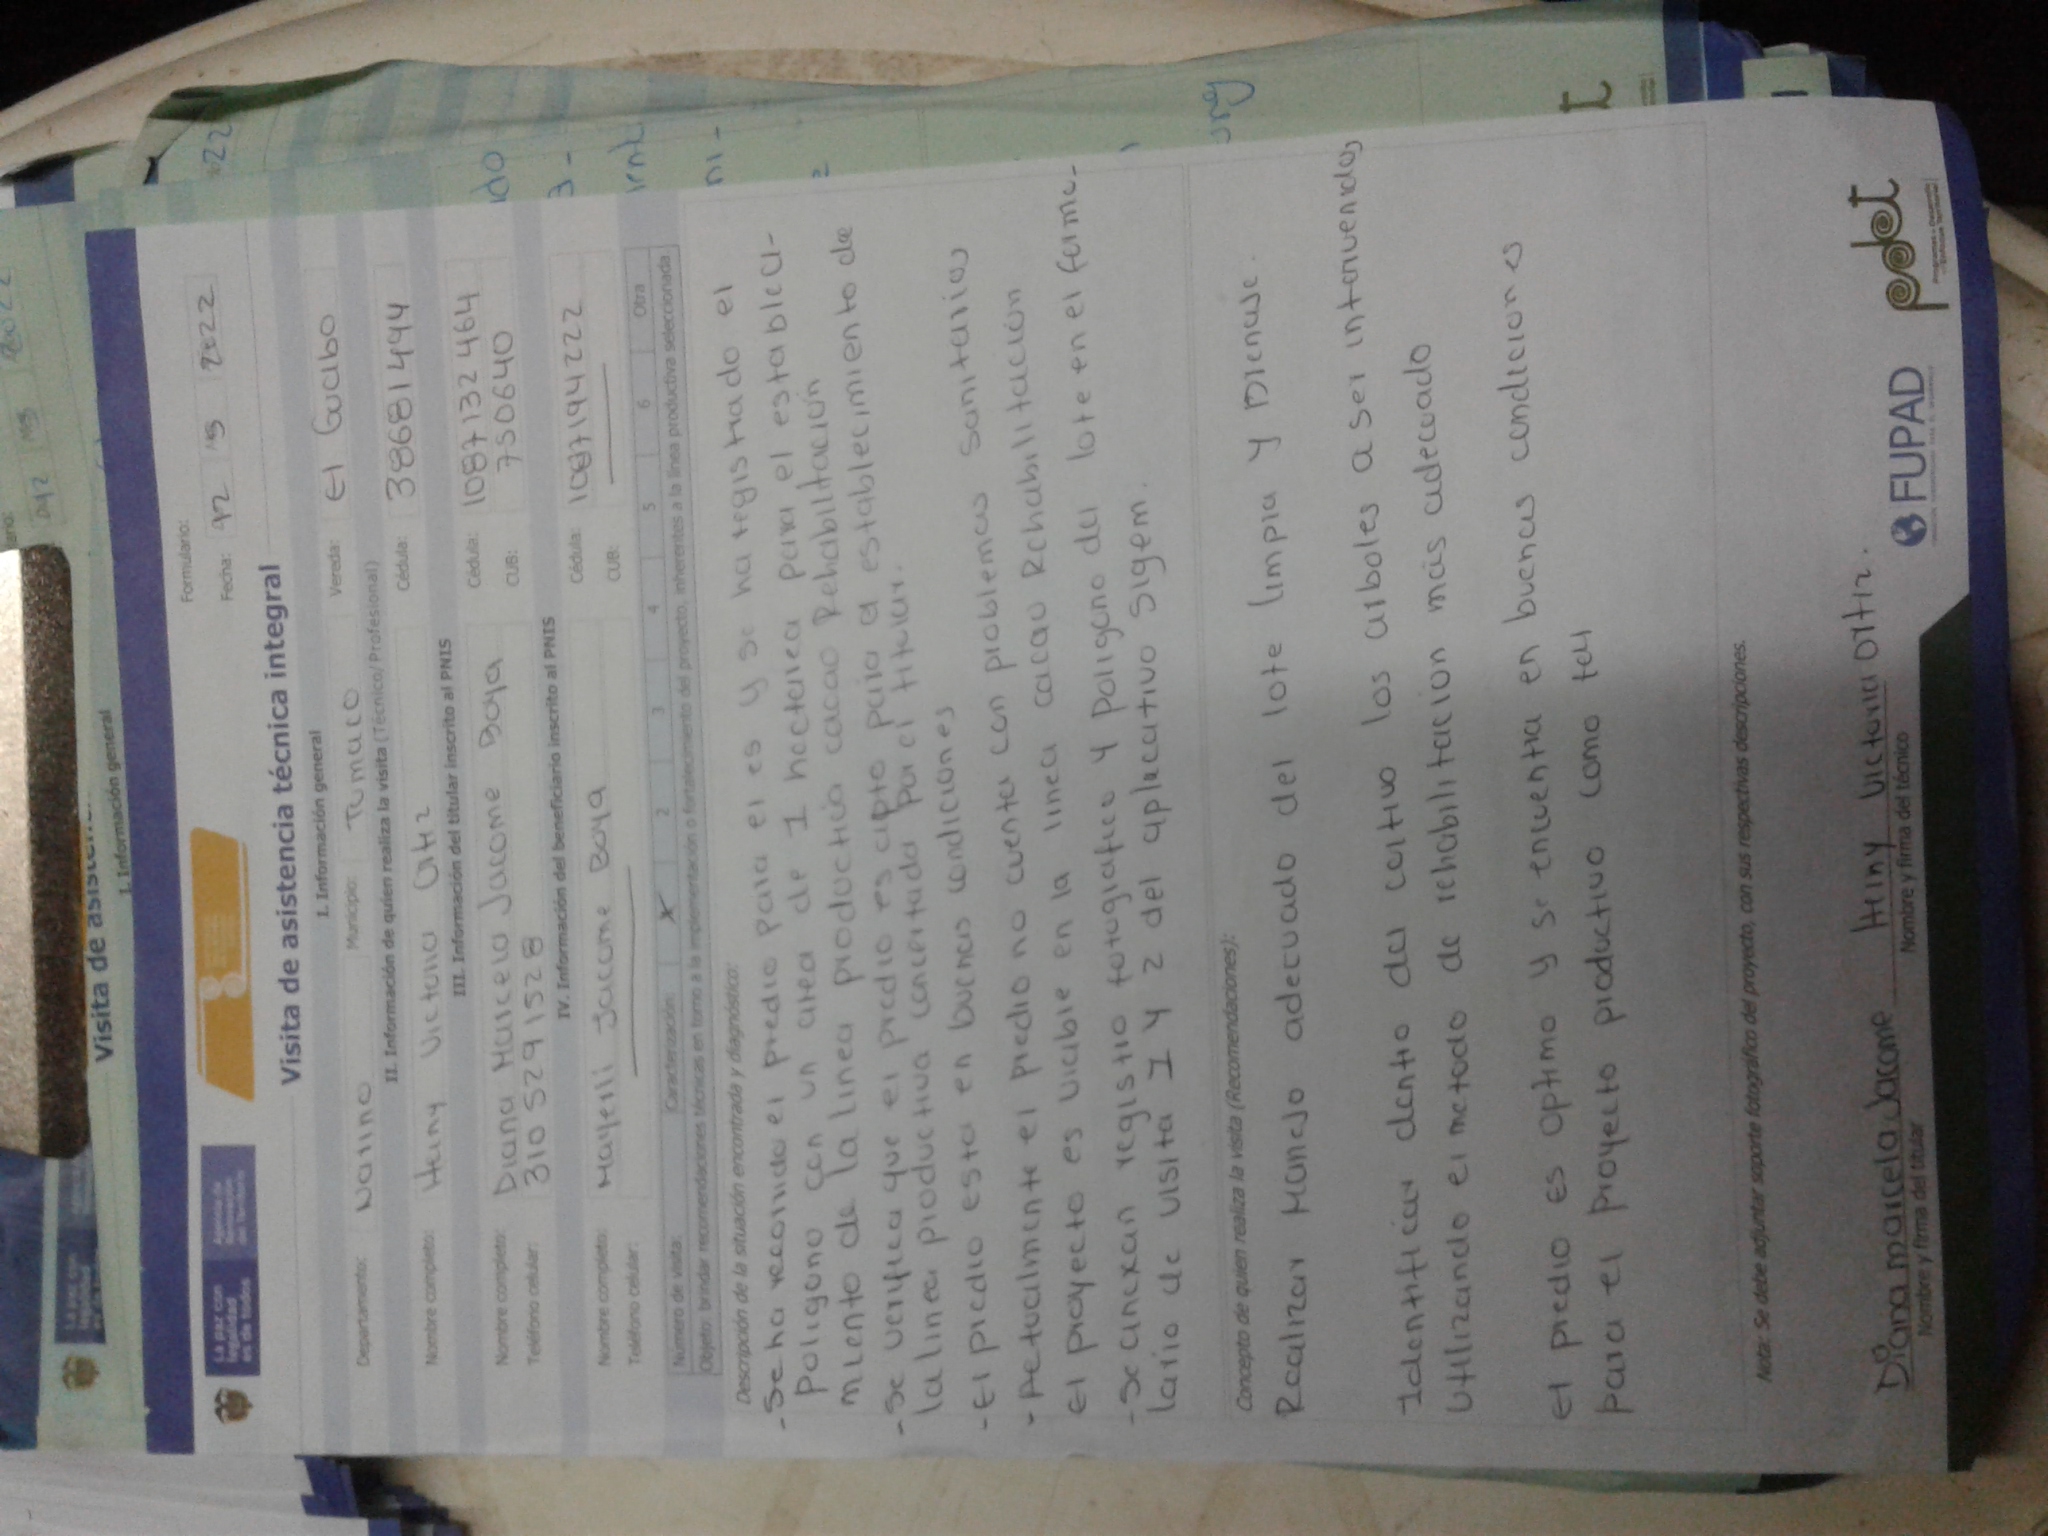 Visita de asistencia técnica integral
I. Información general
La paz con
legalidad
es de todos
Agencia de
Renovación
del Territorio
Formulario:
Fecha: 2022
Visita de asistencia técnica integral
I. Información general
Departamento: Nariño Municipio: Tumaco Vereda: El Guabo
II. Información de quien realiza la visita (Técnico/Profesional)
Nombre completo: Heiny Victoria Ortiz Cédula: 38681444
III. Información del titular inscrito al PNIS
Nombre completo: Diana Marcela Jacome Boya Cédula: 1087132464
Teléfono celular: 3105291528 CUB: 750640
IV. Información del beneficiario inscrito al PNIS
Nombre completo: Mayerli Jacome Boya Cédula: 1087194222
Teléfono celular: CUB:
Número de visita: Caracterización: X 2 3 4 5 6 Otra
Objeto: brindar recomendaciones técnicas en torno a la implementación o fortalecimiento del proyecto, inherentes a la línea productiva seleccionada.
Descripción de la situación encontrada y diagnóstico:
- Se ha recorrido el predio para el es y se ha registrado el
poligono con un area de 1 hectarea para el estableci-
miento de la linea productia cacao Rehabilitación
- Se verifica que el predio es apto para el establecimiento de
la linea productiva concertada por el titular.
- El predio esta en buenas condiciones
- Actualmente el predio no cuenta con problemas sanitarios
El proyecto es viable en la linea cacao Rehabilitación
- Se anexan registro fotografico y poligono del lote en el formu-
lario de visita 1 y 2 del aplicativo Sigem.
Concepto de quien realiza la visita (Recomendaciones):
Realizar Manejo adecuado del lote limpia y Drenaje.
Identificar dentro del cultivo los arboles a ser intervenidos
Utilizando el metodo de rehabilitacion más adecuado
el predio es optimo y se encuentra en buenas condiciones
para el proyecto productivo como tal
Nota: Se debe adjuntar soporte fotográfico del proyecto, con sus respectivas descripciones.
Diana marcela Jacome Heiny Victoria Ortiz.
Nombre y firma del titular Nombre y firma del técnico
FUPAD
pdet